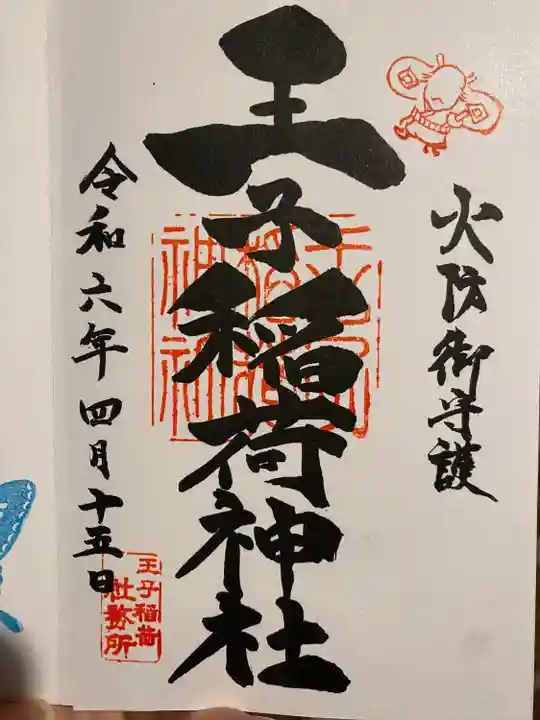 火防御守護
王子稲荷神社
令和六年四月十五日
王子稲荷
社務所